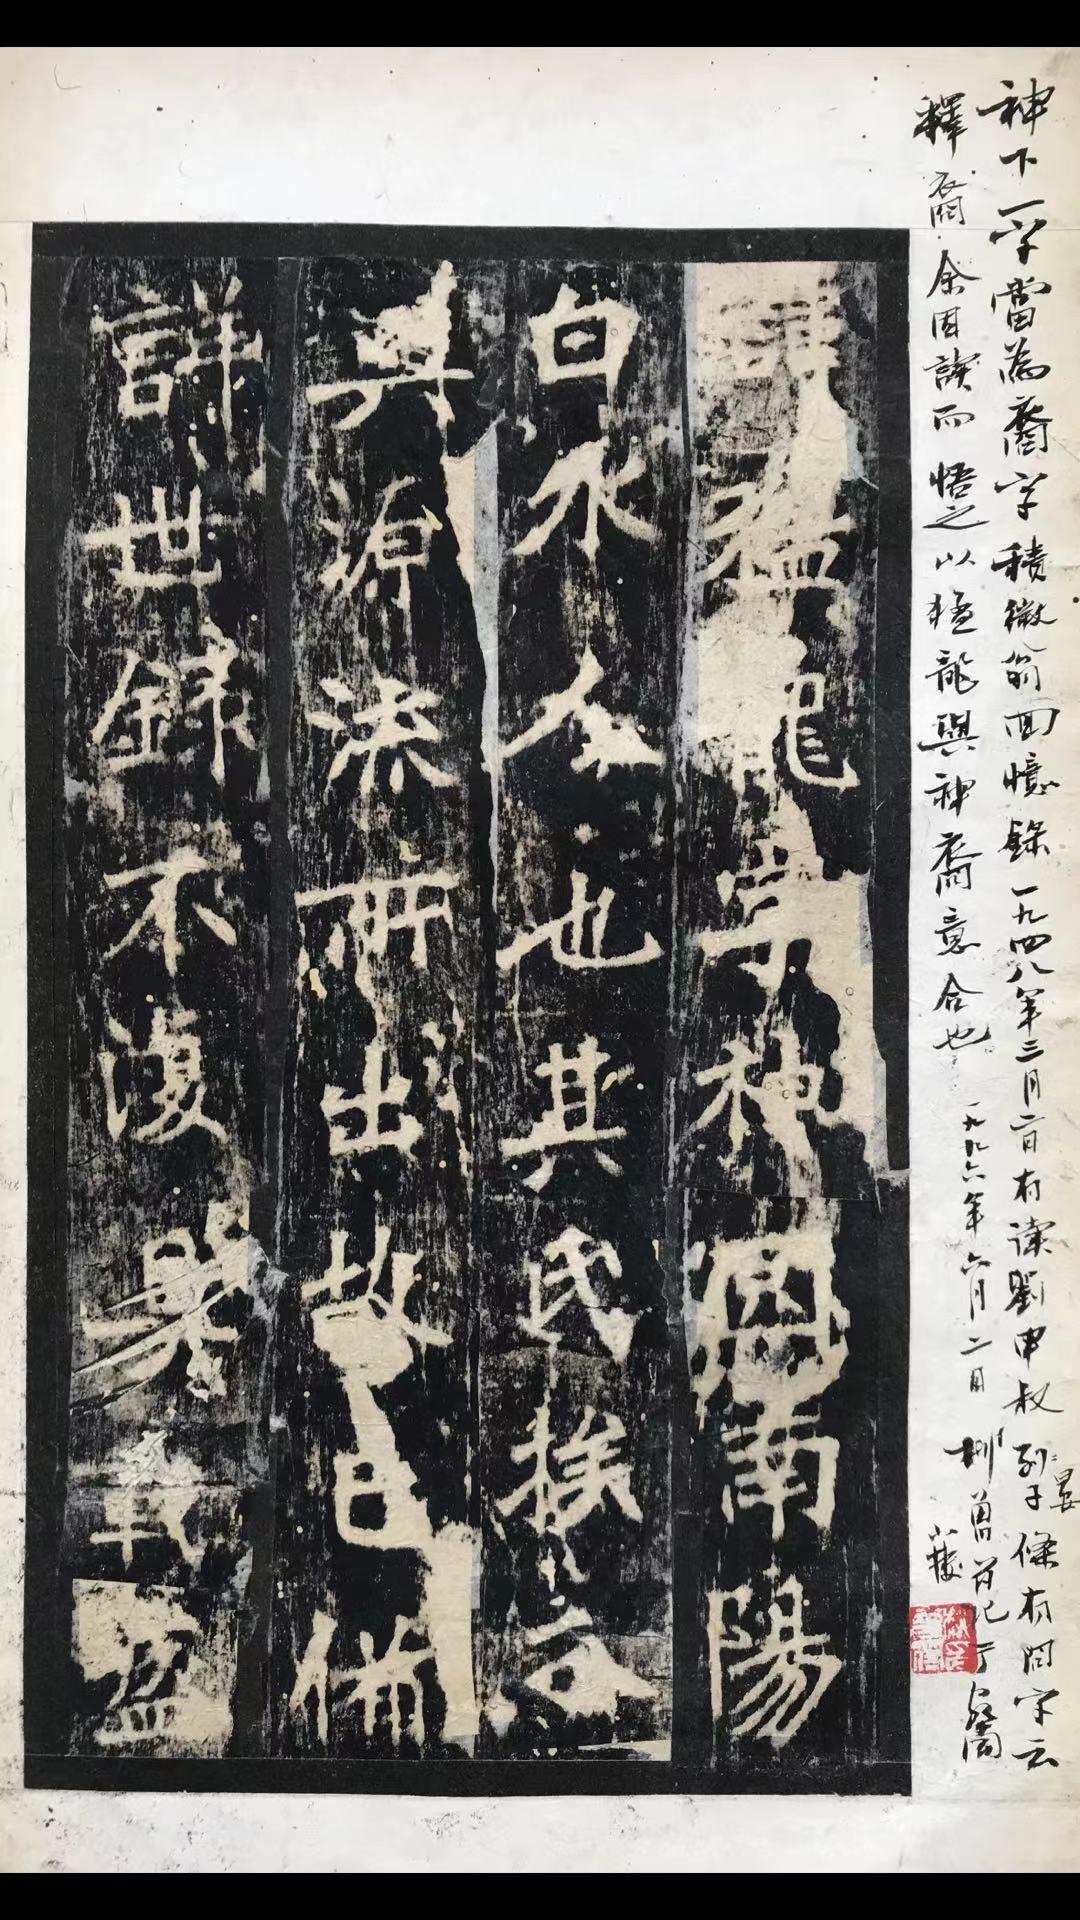 神下一字當為裔字積微翁回憶錄一九四八年三月二日有讀劉申叔晏子條有冏字云
釋裔余因讀而悟之以猛龍與神裔意合也一九九六年六月二日
諱猛龍字神冏南陽
白水人也其氏族分
興源流所出故已備
詳世錄不復具載盈